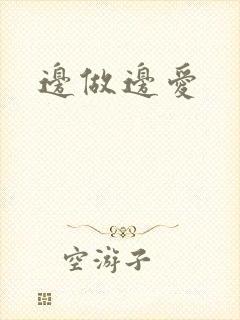 邊做邊愛
空游子